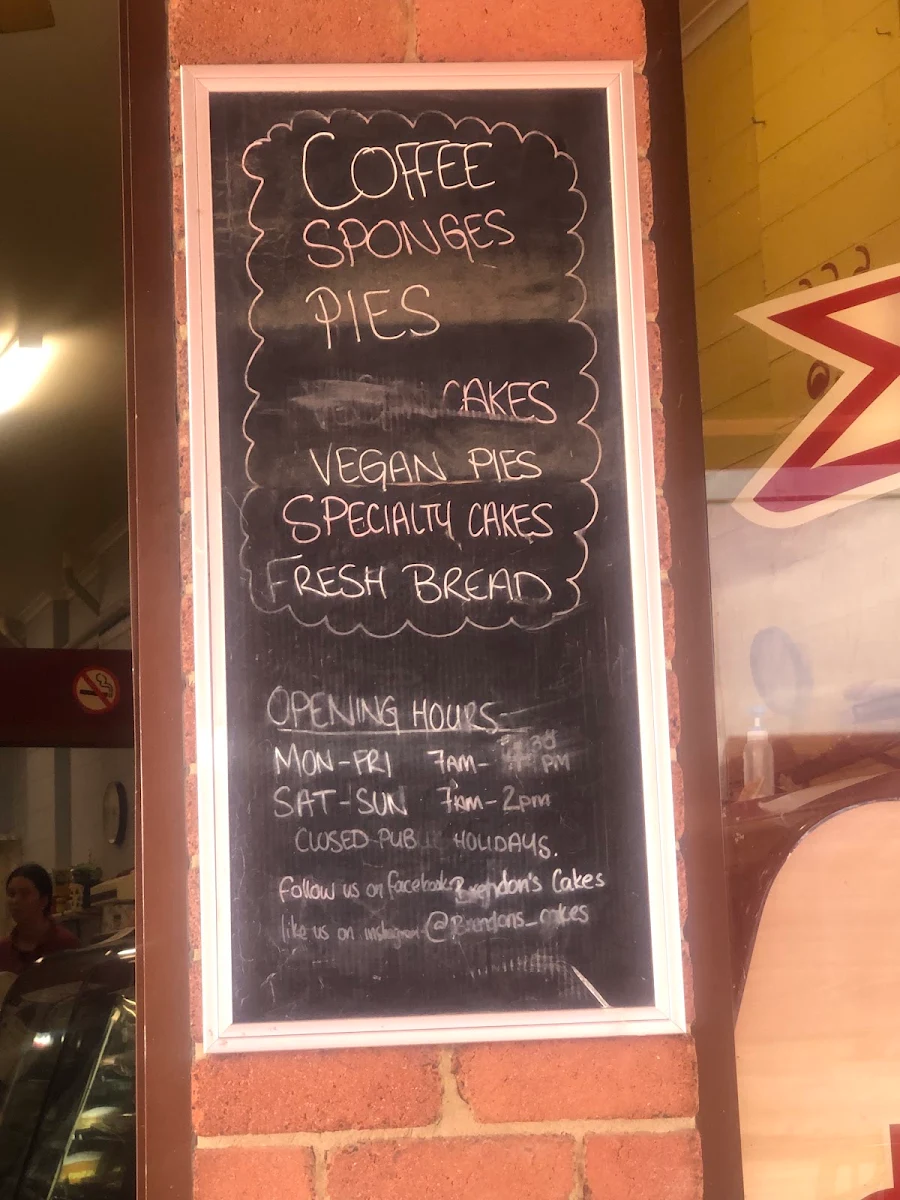 COFFEE
SPONGES
PIES
CAKES
VEGAN PIES
SPECIALTY CAKES
FRESH BREAD
OPENING HOURS
MON-FRI 7AM- 30 PM
SAT-SUN 7AM-2PM
CLOSED PUB HOLIDAYS.
follow us on facebook Brendon's Cakes
like us on instagram @Brendons_cakes